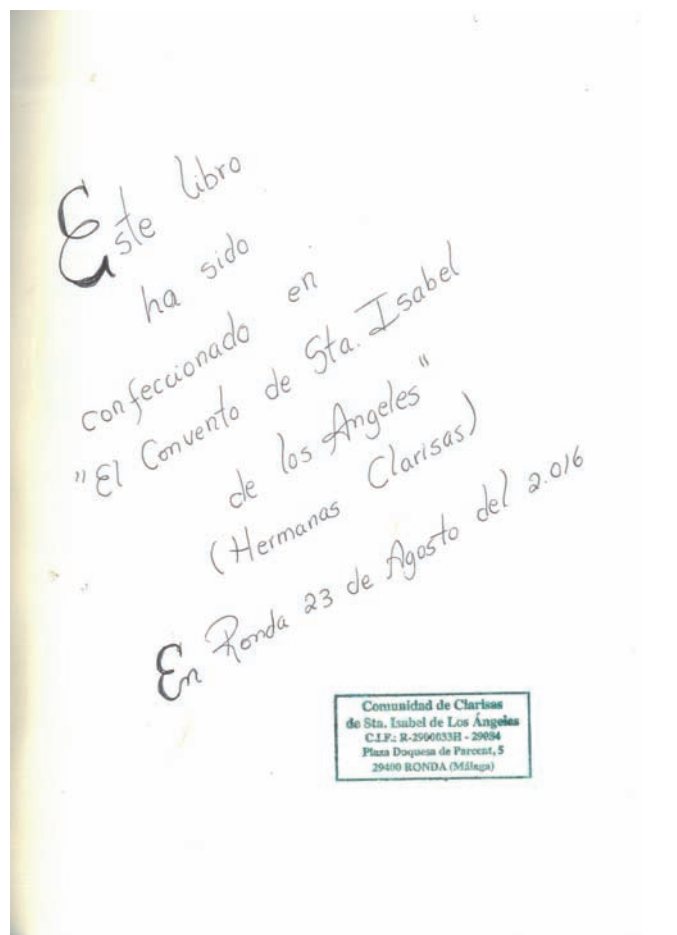 Este libro
ha sido
confeccionado en
"El Convento de Sta. Isabel
de los Angeles"
(Hermanas Clarisas)
En Ronda 23 de Agosto del 2.016
Comunidad de Clarisas
de Sta. Isabel de Los Ángeles
C.I.F.: R-2900033H - 29084
Plaza Duquesa de Parcent, 5
29400 RONDA (Málaga)